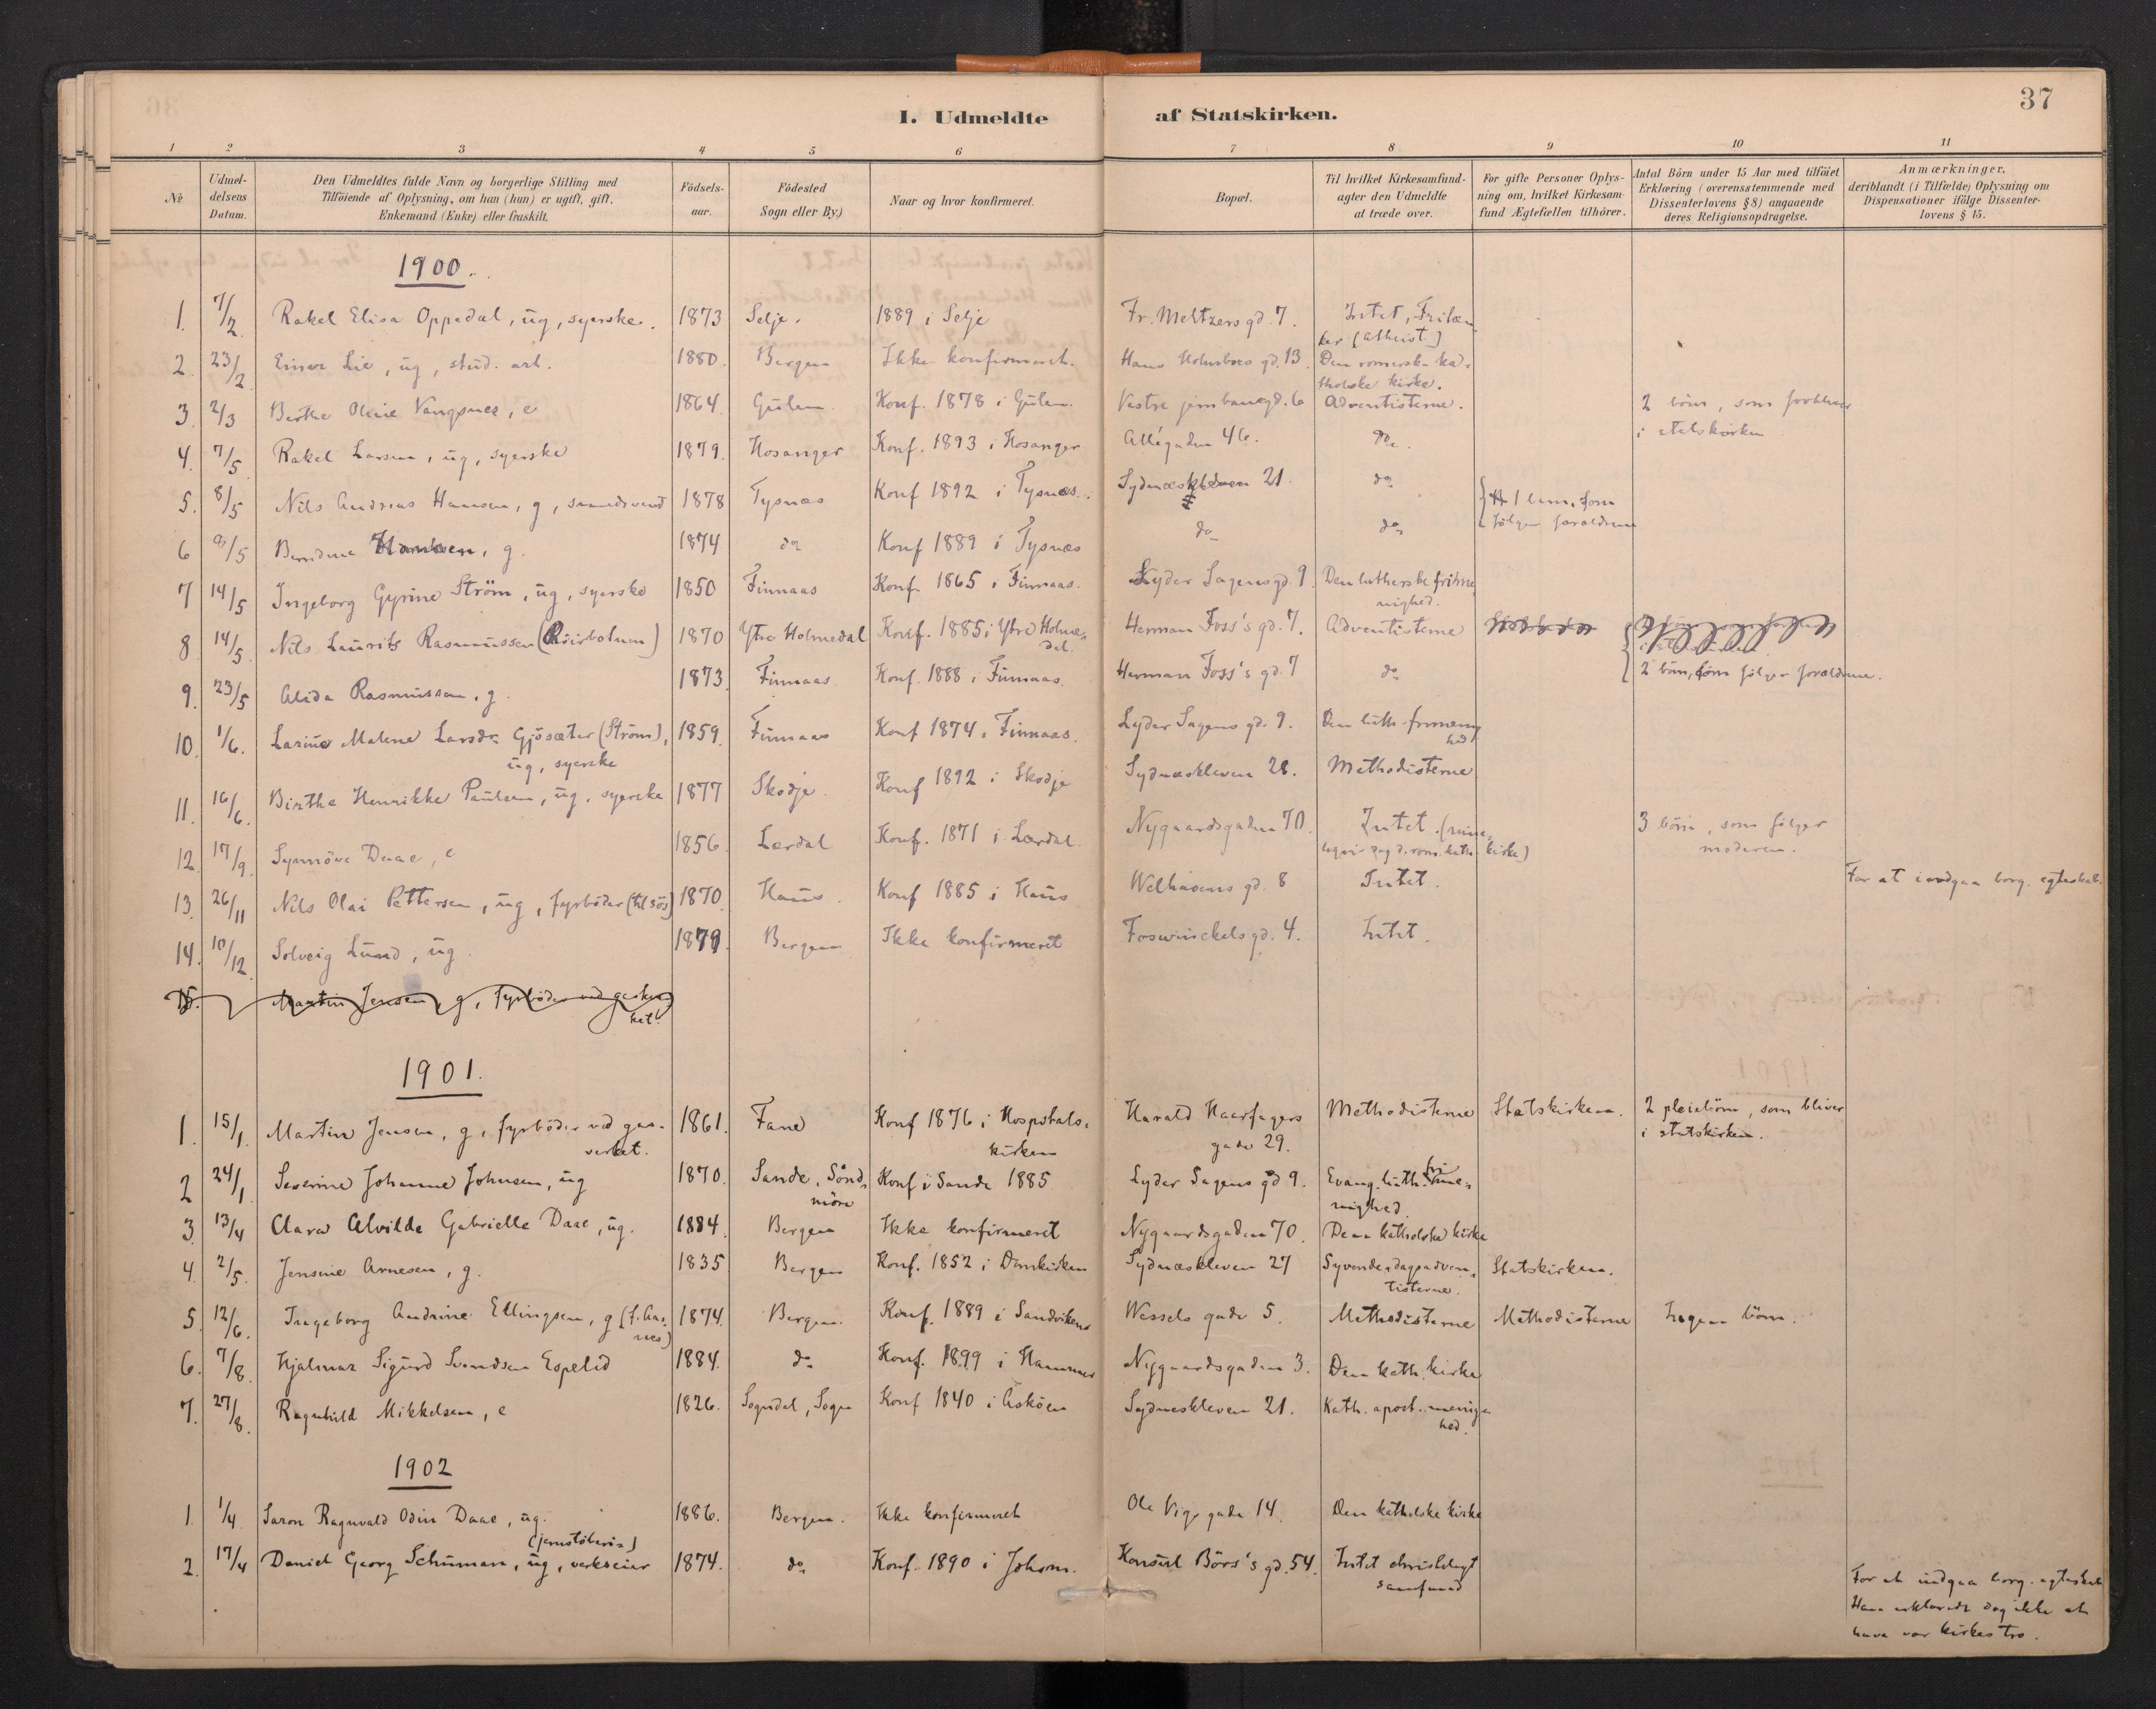 37
I. Udmeldte af Statskirken.
1 2 3 4 5 6 7 8 9 10 11
№
Udmeldelsens Datum.
Den Udmeldtes fulde Navn og borgerlige Stilling med
Tilföiende af Oplysning, om han (hun) er ugift, gift,
Enkemand (Enke) eller fraskilt.
Födselsaar.
Födested
Sogn eller By.)
Naar og hvor konfirmeret.
Bopæl.
Til hvilket Kirkesamfund
agter den Udmeldte
at træde over.
For gifte Personer Oplys-
ning om, hvilket Kirkesam-
fund Ægtefællen tilhörer.
Antal Börn under 15 Aar med tilföiet
Erklæring (overensstemmende med
Dissenterlovens § 8) angaaende
deres Religionsopdragelse.
Anmærkninger,
deriblandt (i Tilfælde) Oplysning om
Dispensationer ifölge Dissenter-
lovens § 15.
1900.
1. 7/2 Rakel Elisa Oppedal, ug, syerske. 1873 Selje. 1889 i Selje Fr. Meltzers gd. 7. Intet, Fritæn
ker (Atheist)
2. 23/2 Einar Lie, ug, stud. art. 1880. Bergen Ikke konfirmeret. Hans Holmboes gd. 13. Den romersk-ka-
tholske kirke.
3. 2/3 Berthe Oline Vangsnes, e 1864. Gulen Konf. 1878 i Gulen. Vestre jernbanegd. 6 Adventisterne. 2 börn, som forbliver
i statskirken
4. 7/5 Rakel Larsen, ug, syerske 1879. Hosanger Konf. 1893 i Hosanger Allégaden 46. Do.
5. 8/5 Nils Andreas Hansen, g, 1878 Tysnæs Konf 1892 i Tysnæs. Sydnæskleven 21. do 1 som
fölger forældrene
6 8/5 Berndine Hansen, g. 1874 do Konf 1889 i Tysnæs do do
7 14/5 Ingeborg Gyrine Ström, ug, syerske 1850 Finnaas Konf. 1865 i Finnaas. Lyder Sagens gd. 9. Den lutherske frime
nighed.
8 14/5 Nils Laurits Rasmussen (Röirbotnen) 1870 Ytre Holmedal Konf. 1885 i Ytre Holme-
dal. Herman Foss's gd. 7. Adventisterne
9. 23/5 Alida Rasmussen, g. 1873. Finnaas. Konf. 1888 i Finnaas. Herman Foss's gd. 7 do 2 börn, som fölger forældrene.
10. 1/6. Larine Malene Larsdr Gjösæter (Ström), 1859. Finnaas Konf 1874 i Finnaas. Lyder Sagens gd. 9. Den luth. frimenig
hed
ug, syerske
11. 16/6. Birthe Henrikke Paulsen, ug. syerske 1877 Skodje. Konf 1892 i Skodje Sydnæskleven 28. Methodisterne
12. 17/9. Synnöve Daae, e 1856. Lærdal Konf. 1871 i Lærdal. Nygaardsgaden 70. Intet. 3 börn, som fölger
moderen.
13. 26/11 Nils Olai Pettersen, ug, fyrböder (til sös) 1870. Haus. Konf 1885 i Haus Welhavens gd. 8 Intet. For at indgaa borg. egteskab.
14. 10/12. Solveig Lund, ug 1879. Bergen Ikke konfirmeret Foswinckels gd. 4. Intet.
15. Martin Jensen, g, fyrböder ved gasver
ket.
1901.
1. 15/1. Martin Jensen, g, fyrböder ved gas-
verket. 1861. Fane Konf 1876 i Hospitals-
kirken Harald Haarfagers
gade 29. Methodisterne Statskirken. 2 pleiebörn, som bliver
i statskirken.
2 24/1. Severine Johanne Johnsen, ug 1870. Sande, Sönd-
möre Konf i Sande 1885 Lyder Sagens gd 9. Evang. luth. frime-
nighed.
3. 13/4 Clara Alvilde Gabrielle Daae, ug. 1884. Bergen Ikke konfirmeret Nygaardsgaden 70. Den katholske kirke
4. 2/5. Jensine Arnesen, g. 1835 Bergen Konf. 1852 i Domkirken Sydnæskleven 27 Syvende-dags adven-
tisterne. Statskirken.
5. 12/6. Ingeborg Andrine Ellingsen, g 1874. Bergen. Konf. 1889 i Sandviken Wessels gade 5. Methodisterne Methodisterne Ingen börn.
6. 7/8. Hjalmar Sigurd Svendsen Espelid 1884. do Konf. 1899 i Hammer Nygaardsgaden 3. Den kath. kirke
7. 27/8. Ragnhild Mikkelsen, e 1826. Sogndal, Sogn Konf 1840 i Asköen Sydneskleven 21. Kath. apost. menig-
hed.
1902
1. 1/4. Saron Ragnvald Odin Daae, ug. 1886. Bergen. Ikke konfirmeret Ole Vigs gade 14. Den katholske kirke
(jernstöberi)
2. 17/4 Daniel Georg Schumann, ug, verkseier 1874. do Konf. 1890 i Johann. Konsul Börs's gd. 54. Intet christeligt
samfund
For at indgaa borg. egteskab
Han erklærede dog ikke at
have vor kirkes tro.